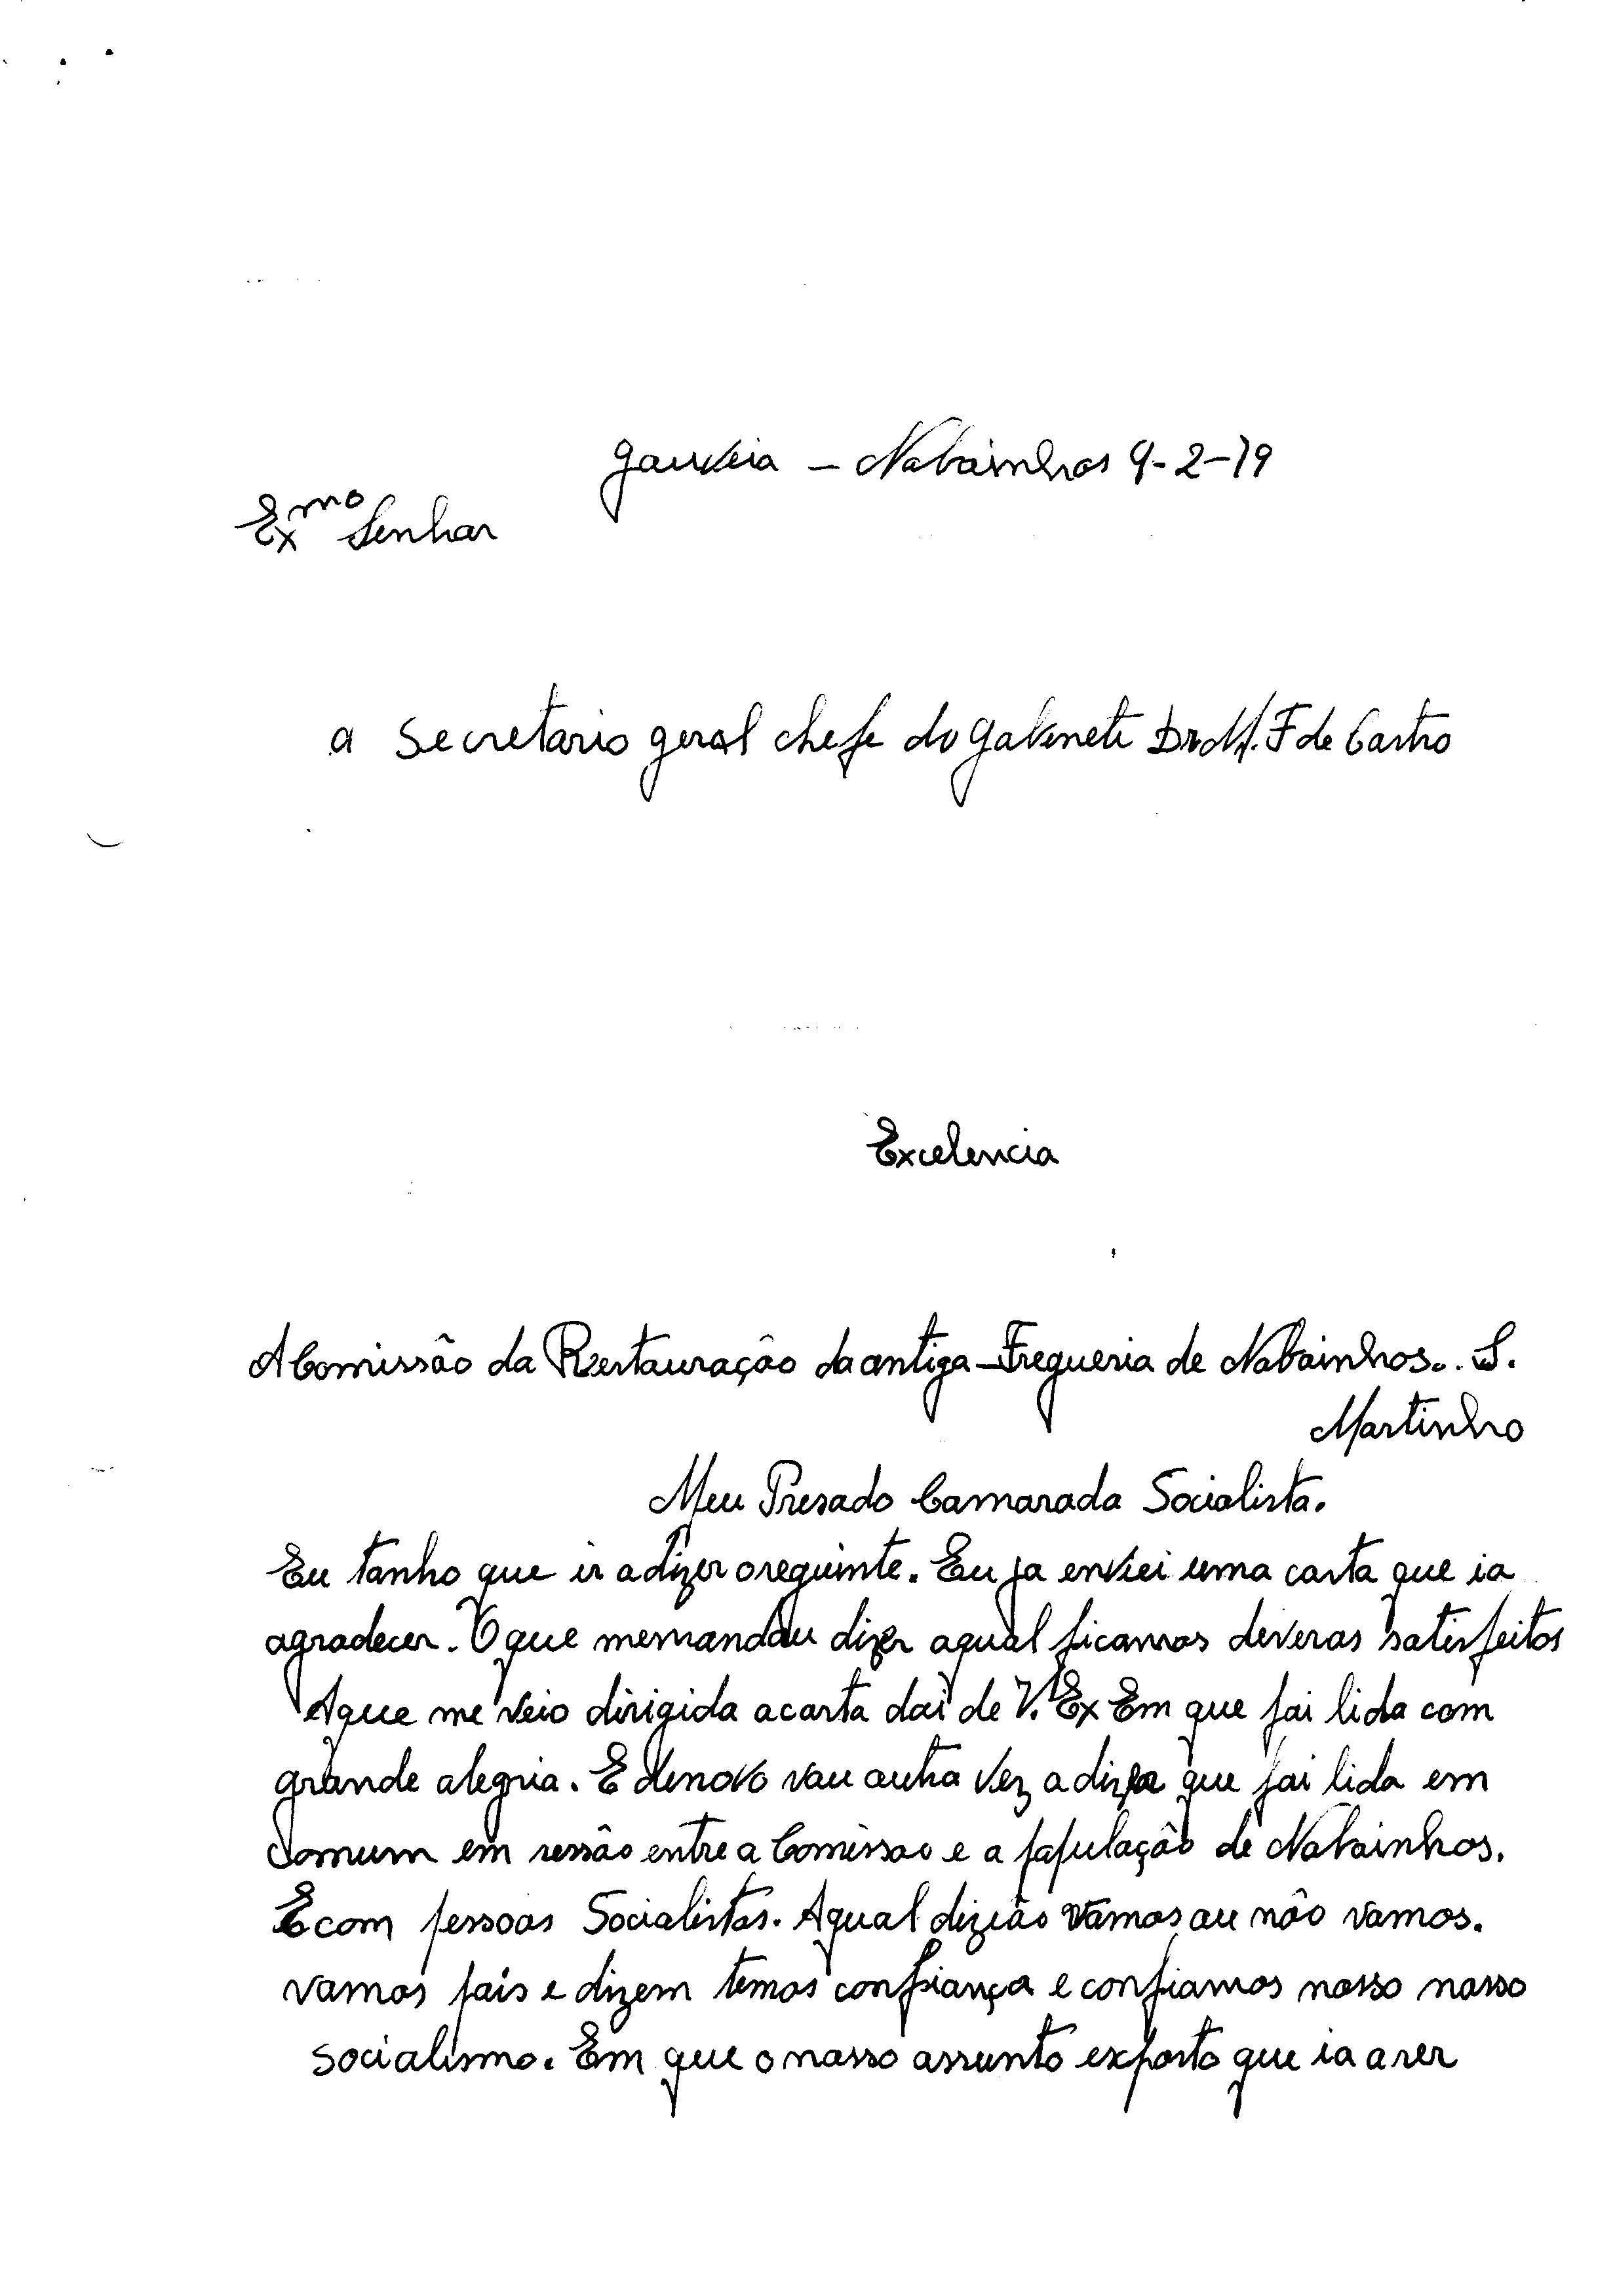 Gouveia - Nabainhos 9-2-79
Exmo Senhor
a Secretario geral chefe do gabinete Dr M. F de Castro
Excelencia
A Comissão da Restauração da antiga Freguesia de Nabainhos.. S.
Martinho
Meu Presado Camarada Socialista.
Eu tanho que ir a dizer o seguinte. Eu ja enviei uma carta que ia
agradecer. O que memandou dizer aqual ficamos deveras satisfeitos
Aque me veio dirigida a carta dai de V. Ex Em que foi lida com
grande alegria. E denovo vou outra vez a dizer que foi lida em
Comum em sessão entre a Comissao e a população de Nabainhos.
E com pessoas Socialistas. Aqual dizião vamos ou não vamos.
vamos pois e dizem temos confiança e confiamos nosso nosso
socialismo. Em que o nosso assunto exposto que ia a ser